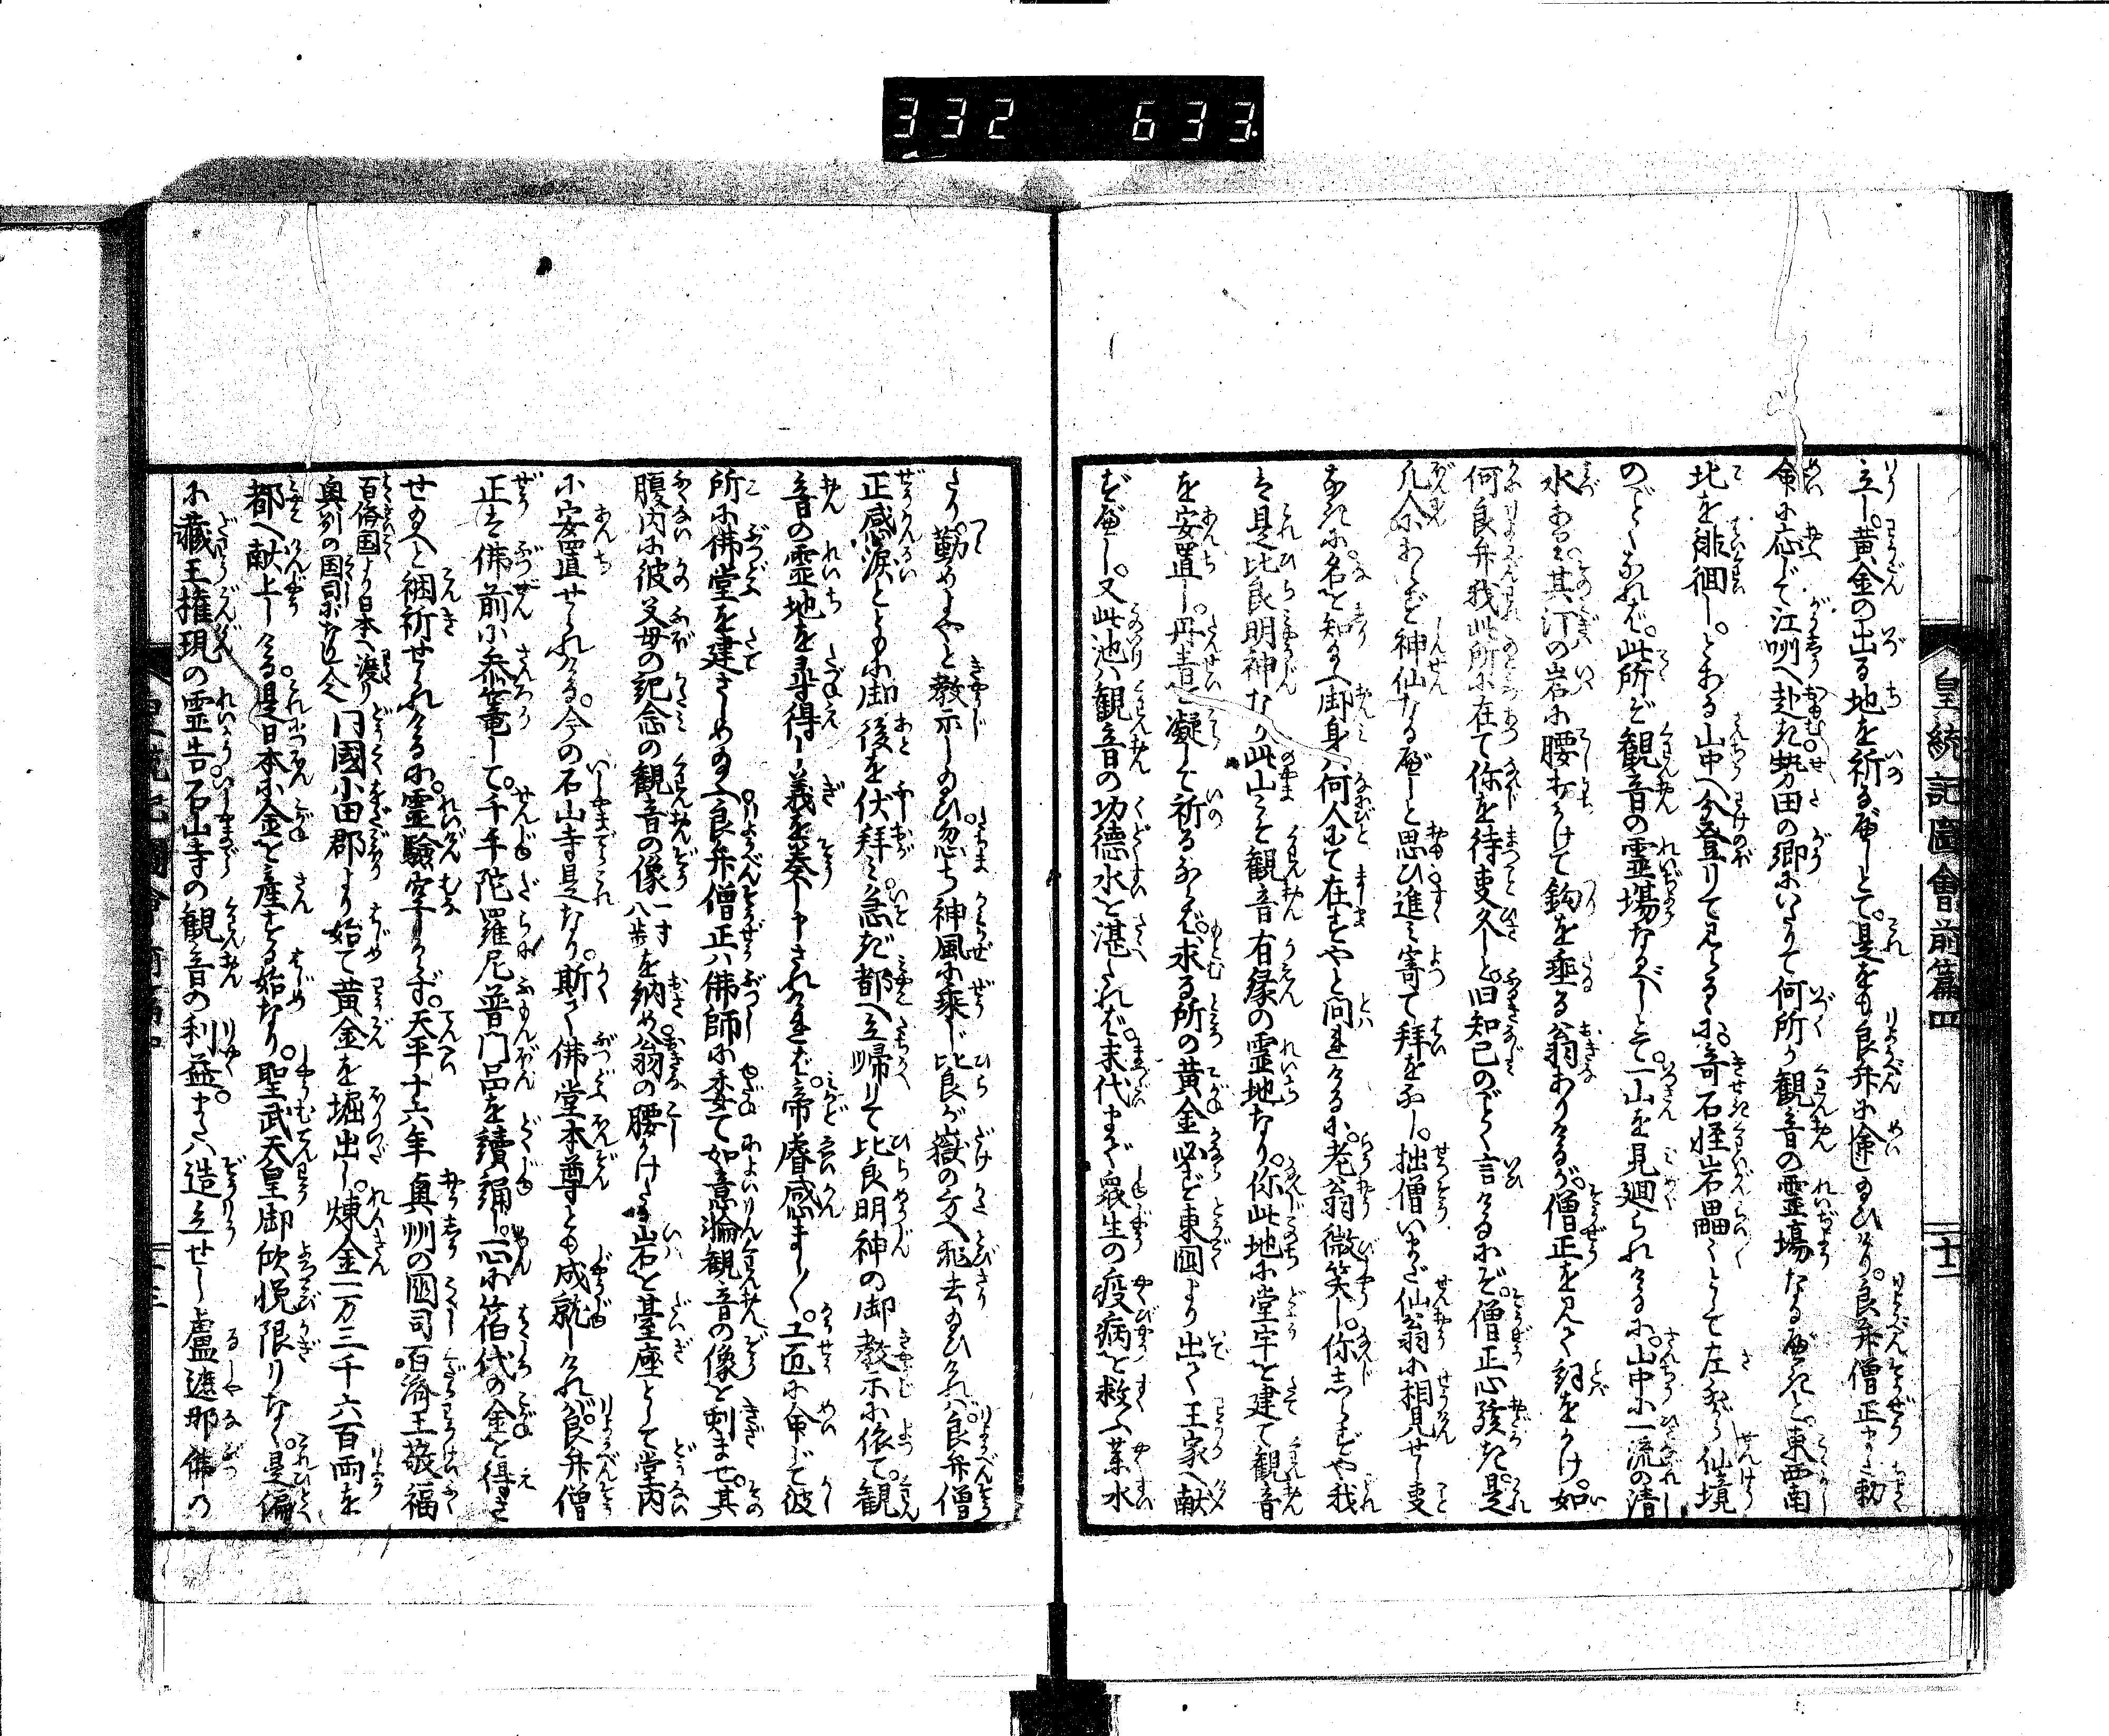 332 633
皇統記圖會前篇四
十二
立し。黄金の出る地を祈るべしとて。是をも良弁に命じ給ひけり。良弁僧正やがて勅
命に応じて江州へ赴き勢田の郷にいたりて何所か観音の霊場なるべきと。東西南
北を徘徊し。とある山中へ分登りて見るに。奇石怪岩畾々として左ながら仙境
のごとくなれば。此所ぞ観音の霊場なるべしとて。一山を見廻られけるに。山中に一流の清
水あり。其汀の岩に腰かけて釣を垂る翁ありけるが。僧正を見て詞をかけ。如
何良弁我此所に在て你を待事久しと。旧知己のごとく言けるにぞ。僧正心駭き。是
凡人にあらず神仙なるべしと思ひ進み寄て拝をなし。拙僧いまだ仙翁に相見せし事
なきに。名を知給ふ御身ハ何人にて在すやと問れけるに。老翁微笑し。你しらずや我
は是比良明神なり此山こそ観音有縁の霊地なり。你此地に堂宇を建て観音
を安置し。丹青を凝して祈るならば。求る所の黄金必ず東國より出て王家へ献
ずべし。又此池ハ観音の功徳水を湛たれば。末代まで衆生の疫病を救ふ薬水
たり。勤めよやと教示し給ひ忽ち神風に乗じ比良が嶽の方へ飛去給ひけれバ。良弁僧
正感涙とともに御後を伏拝み。急ぎ都へ立帰りて比良明神の御教示に依て。観
音の霊地を尋得し義を奏し申されけれバ。帝睿感まし〱。工匠に命じて彼
所に佛堂を建さしめ給へ。良弁僧正ハ佛師に委て如意輪観音の像を刻ませ。其
腹内に彼父母の記念の観音の像一寸八歩を納め翁の腰かけたる岩を臺座として堂内
に安置せられける。今の石山寺是なり。斯て佛堂本尊とも成就しけれバ。良弁僧
正は佛前に参篭して。千手陀羅尼普門品を讀誦し。一心に箔代の金を得さ
せ給へと祈せられけるに。霊驗空しからず。天平十六年奥州の國司百済王敬福
百済国より日本へ渡り奥州の国司になりし人 同國小田郡より始て黄金を堀出し。煉金一万三千六百両を
都へ献上しける。是日本に金を産する始なり。聖武天皇御欣悦限りなく。是偏
に藏王権現の霊告。石山寺の観音の利益。または造立せし盧遮那佛の